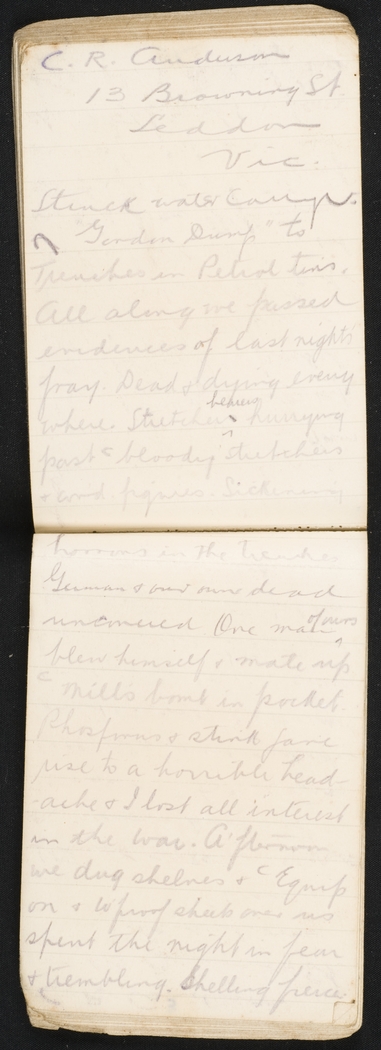 C. R. Anderson
13 Browning St
Seddon
Vic.
Struck water Carry.
"Gordon Dump" to
Trenches in Petrol tins.
All along we passed
evidences of last nights
fray. Dead & dying every
where. Stretcher bearers hurrying
past c bloody stretchers
& wnd. figures. Sickening
horrors in the trenches
Germans & our own dead
uncovered One man of ours
blew himself & mate up
c Mills bomb in pocket.
Phosforus & stink gave
rise to a horrible head-
ache & I lost all interest
in the war. Afternoon
we dug shelves & c Equip
on & W/proof sheets over us
spent the night in fear
& trembling. Shelling fierce